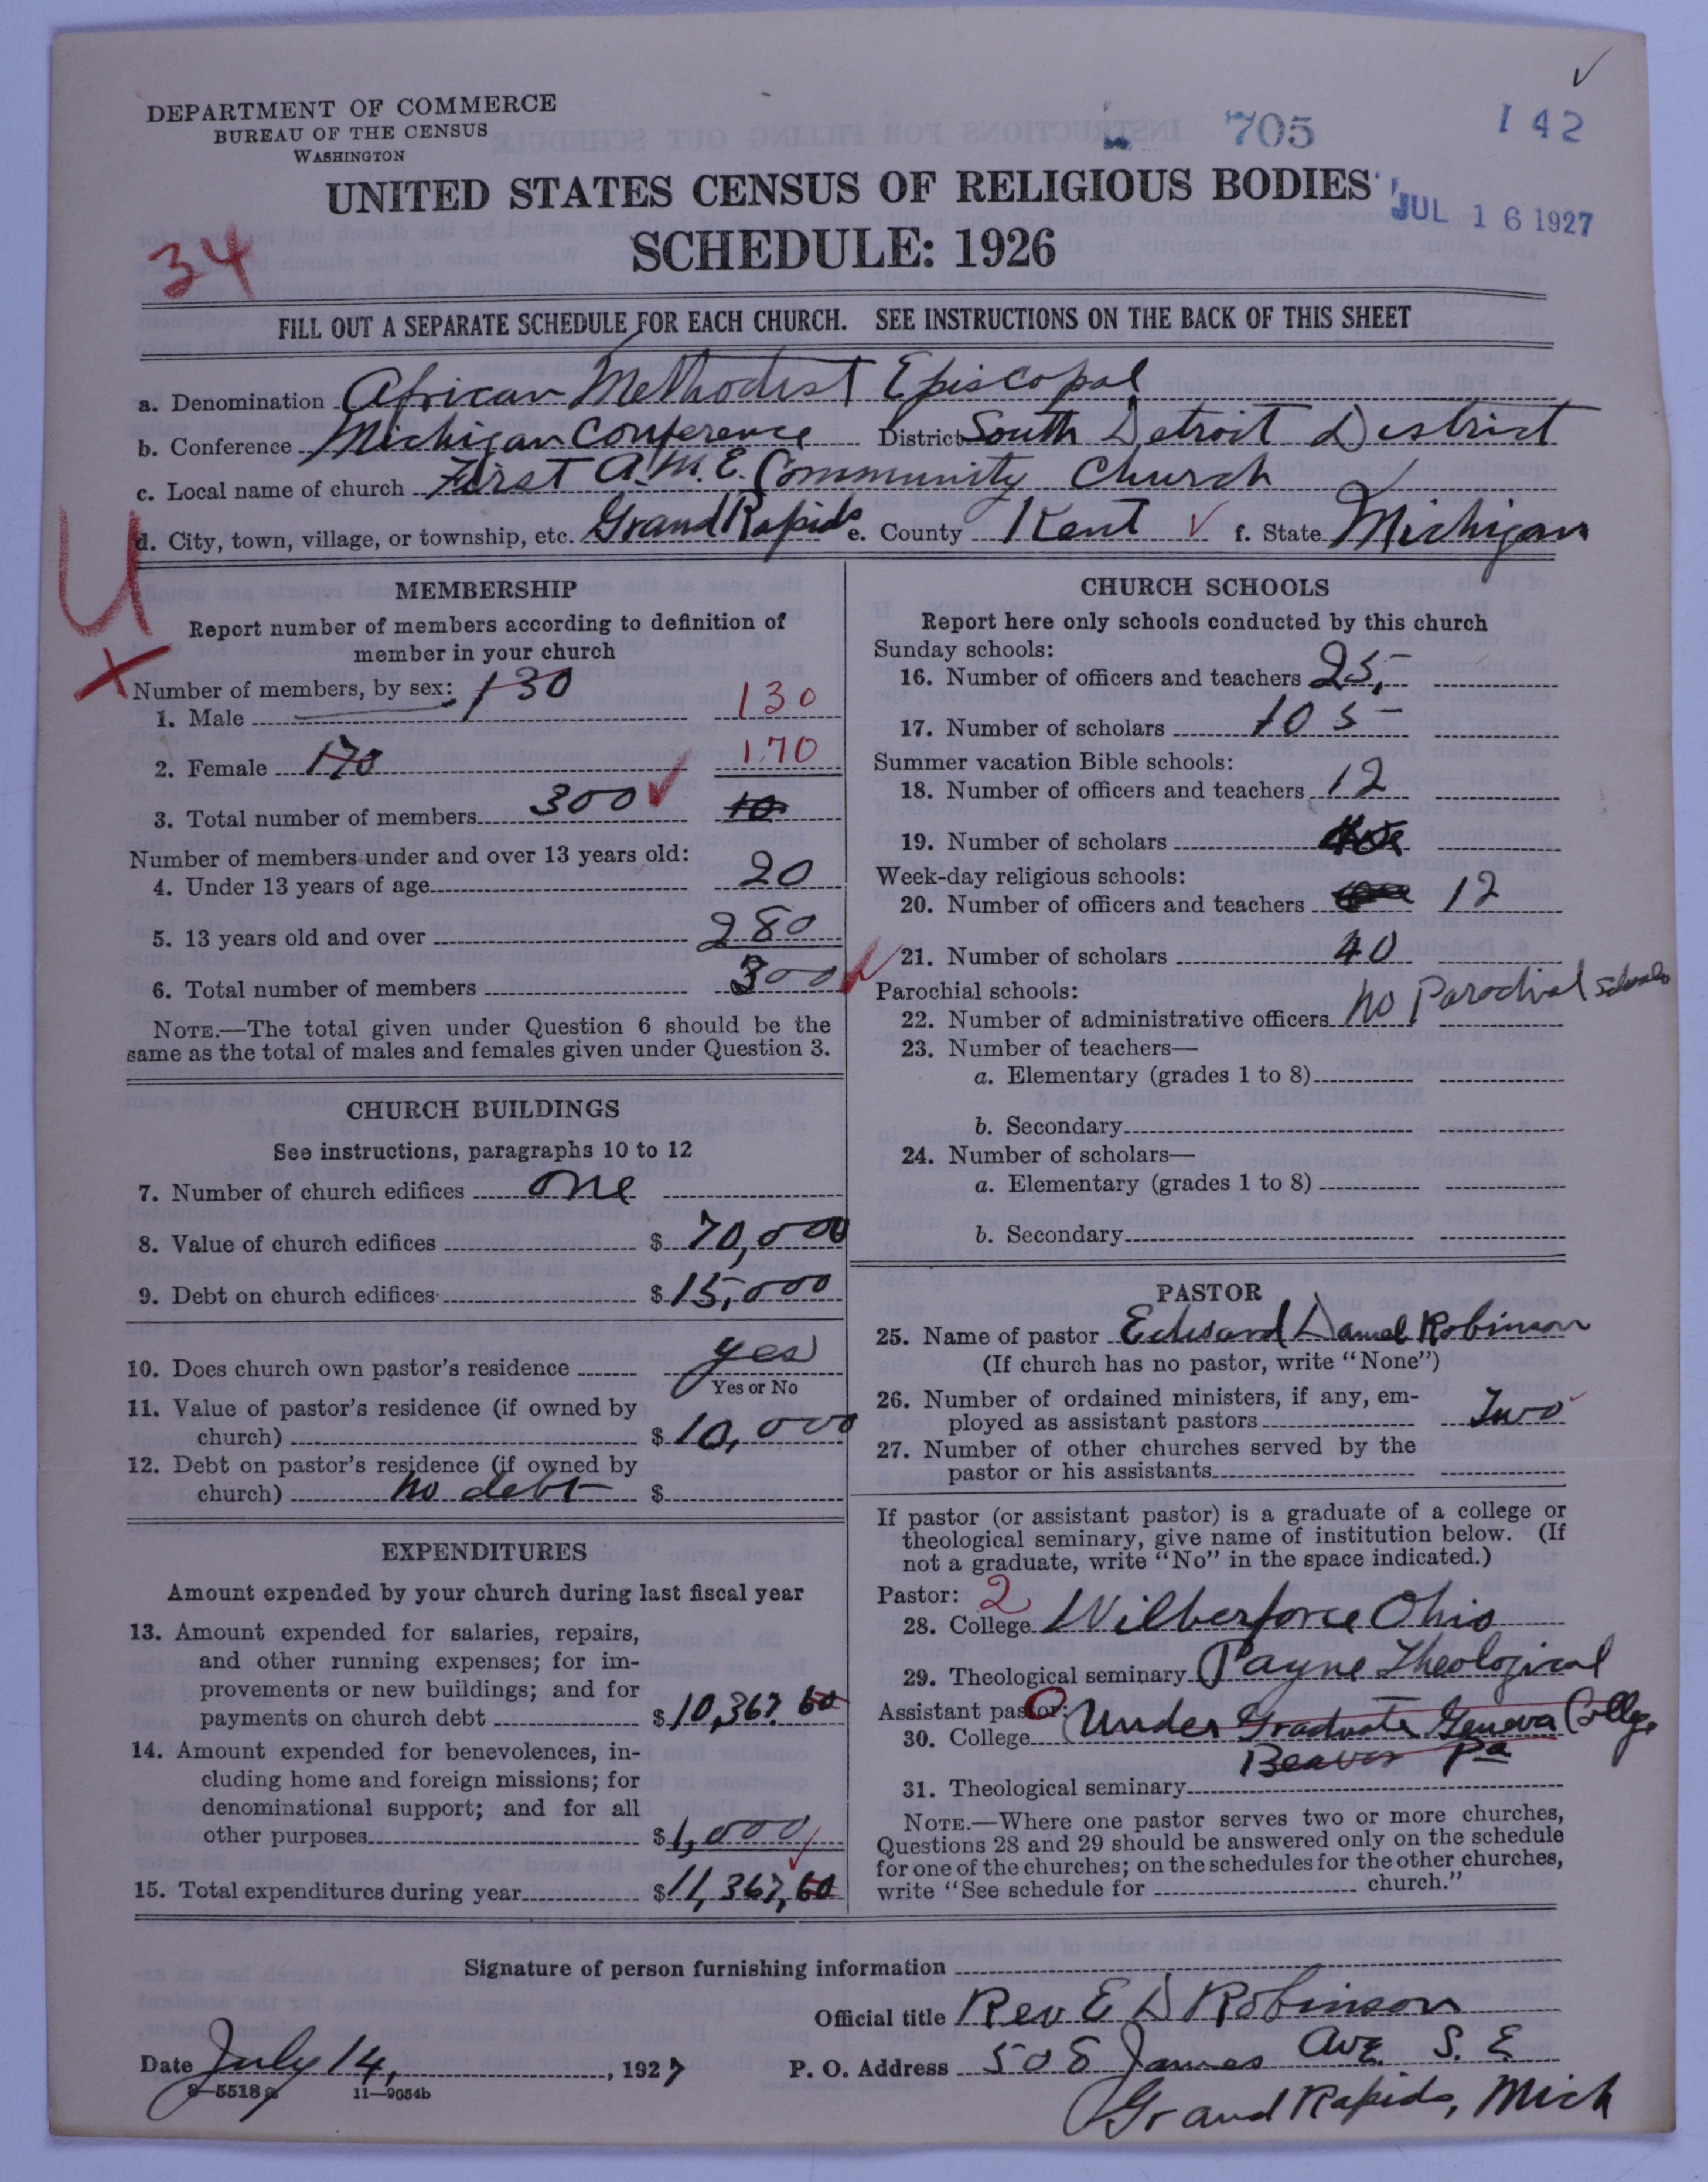 DEPARTMENT OF COMMERCE
BUREAU OF THE CENSUS
WASHINGTON
705
142
UNITED STATES CENSUS OF RELIGIOUS BODIES
JUL 16 1927
SCHEDULE: 1926
34
FILL OUT A SEPARATE SCHEDULE FOR EACH CHURCH. SEE INSTRUCTIONS ON THE BACK OF THIS SHEET
a. Denomination African Methodist Episcopal
b. Conference Michigan Conference District South Detroit District
c. Local name of church First A.M.E. Community Church
d. City, town, village, or township, etc. Grand Rapids e. County Kent f. State Michigan
MEMBERSHIP
Report number of members according to definition of
member in your church
Number of members, by sex: 130
1. Male 130
2. Female 170 170
3. Total number of members 300 10
Number of members under and over 13 years old:
4. Under 13 years of age 20
5. 13 years old and over 280
6. Total number of members 300
NOTE.—The total given under Question 6 should be the
same as the total of males and females given under Question 3.
CHURCH BUILDINGS
See instructions, paragraphs 10 to 12
7. Number of church edifices One
8. Value of church edifices $ 70,000
9. Debt on church edifices $ 15,000
10. Does church own pastor's residence yes
Yes or No
11. Value of pastor's residence (if owned by
church) $ 10,000
12. Debt on pastor's residence (if owned by
church) no debt $
EXPENDITURES
Amount expended by your church during last fiscal year
13. Amount expended for salaries, repairs,
and other running expenses; for im-
provements or new buildings; and for
payments on church debt $ 10,367.60
14. Amount expended for benevolences, in-
cluding home and foreign missions; for
denominational support; and for all
other purposes $ 1,000
15. Total expenditures during year $ 11,367,60
CHURCH SCHOOLS
Report here only schools conducted by this church
Sunday schools:
16. Number of officers and teachers 25
17. Number of scholars 105
Summer vacation Bible schools:
18. Number of officers and teachers 12
19. Number of scholars
Week-day religious schools:
20. Number of officers and teachers 12
21. Number of scholars 40
Parochial schools:
22. Number of administrative officers no Parochial schools
23. Number of teachers—
a. Elementary (grades 1 to 8)
b. Secondary
24. Number of scholars—
a. Elementary (grades 1 to 8)
b. Secondary
PASTOR
25. Name of pastor Edward Daniel Robinson
(If church has no pastor, write "None")
26. Number of ordained ministers, if any, em-
ployed as assistant pastors Two
27. Number of other churches served by the
pastor or his assistants
If pastor (or assistant pastor) is a graduate of a college or
theological seminary, give name of institution below. (If
not a graduate, write "No" in the space indicated.)
Pastor: 2
28. College Wilberforce Ohio
29. Theological seminary Payne Theological
Assistant pastor:
30. College Under Graduate Geneva College
Beaver Pa
31. Theological seminary
NOTE.—Where one pastor serves two or more churches,
Questions 28 and 29 should be answered only on the schedule
for one of the churches; on the schedules for the other churches,
write "See schedule for church."
Signature of person furnishing information
Official title Rev E D Robinson
Date July 14, 1927 P. O. Address 508 James Ave S. E.
8—5518a 11—9054b
Grand Rapids, Mich